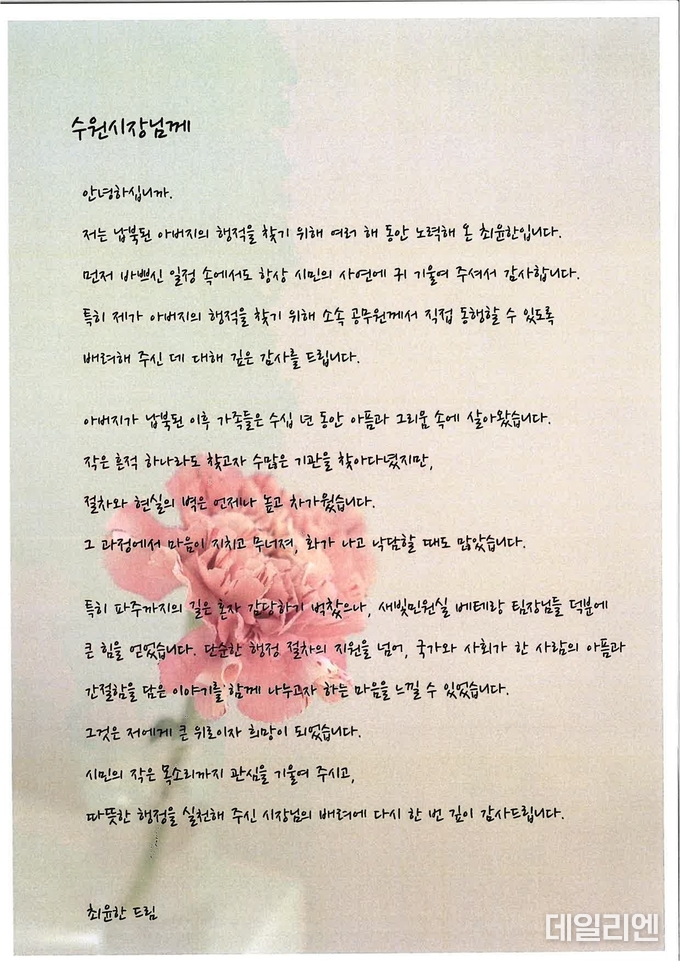 수원시장님께
안녕하십니까.
저는 납북된 아버지의 행적을 찾기 위해 여러 해 동안 노력해 온 최윤한입니다.
먼저 바쁘신 일정 속에서도 항상 시민의 사연에 귀 기울여 주셔서 감사합니다.
특히 제가 아버지의 행적을 찾기 위해 소속 공무원께서 직접 동행할 수 있도록
배려해 주신 데 대해 깊은 감사를 드립니다.
아버지가 납북된 이후 가족들은 수십 년 동안 아픔과 그리움 속에 살아왔습니다.
작은 흔적 하나라도 찾고자 수많은 기관을 찾아다녔지만,
절차와 현실의 벽은 언제나 높고 차가웠습니다.
그 과정에서 마음이 지치고 무너져, 화가 나고 낙담할 때도 많았습니다.
특히 파주까지의 길은 혼자 감당하기 벅찼으나, 새빛민원실 베테랑 팀장님들 덕분에
큰 힘을 얻었습니다. 단순한 행정 절차의 지원을 넘어, 국가와 사회가 한 사람의 아픔과
간절함을 담은 이야기를 함께 나누고자 하는 마음을 느낄 수 있었습니다.
그것은 저에게 큰 위로이자 희망이 되었습니다.
시민의 작은 목소리까지 관심을 기울여 주시고,
따뜻한 행정을 실천해 주신 시장님의 배려에 다시 한 번 깊이 감사드립니다.
최윤한 드림
데일리엔